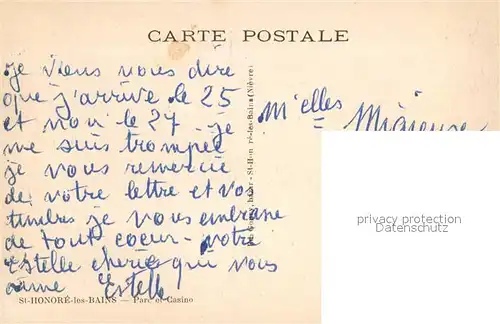 CARTE POSTALE
je viens vous dire
que j'arrive le 25
et non le 27 - je
me suis trompée
je vous remercie
de votre lettre et vos
timbres je vous embrasse
de tout coeur - votre
Estelle cherie qui vous
aime Estelle
St-HONORÉ-les-BAINS — Parc et Casino
St-Hon ré-les-Bains (Nièvre)
Melles
privacy protection
Oldthing.de